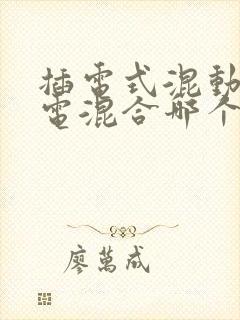 插電式混動
電混合哪个
廖萬成